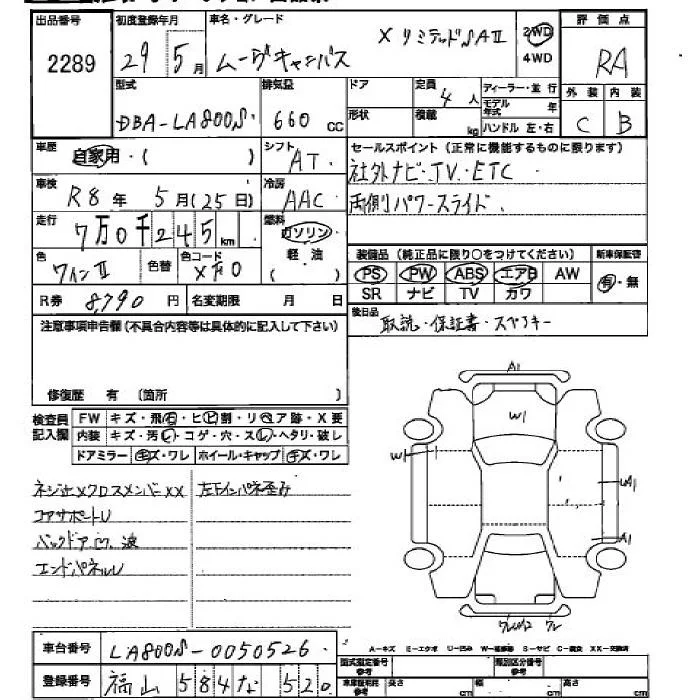 出品番号 初度登録年月 車名・グレード 評価点
2289 29年5月 ムーヴキャンバス XリミテッドSAⅡ 2WD 4WD RA
型式 排気量 ドア 定員 4人 ディーラー・並行 外装 内装
DBA-LA800S 660cc 形状 積載 kg モデル年式 年 ハンドル 左・右 C B
車歴 自家用・( ) シフト AT セールスポイント(正常に機能するものに限ります)
社外ナビ・TV・ETC
車検 R8年5月(25日) 冷房 AAC
両側パワースライド
走行 7万0千245km 燃料 ガソリン 軽・油 ( )
装備品(純正品に限り○をつけてください) 新車保証書
色 ワインⅡ 色替 色コード
PS PW ABS エアB AW 有・無
SR ナビ TV カワ
R券 8,790円 名変期限 月 日
後日品 取説・保証書・スペアキー
注意事項申告欄(不具合内容等は具体的に記入して下さい)
修復歴 有 (箇所 )
検査員記入欄 FW キズ・飛石・ヒビ割・リペア跡・X要
内装 キズ・汚レ・コゲ・穴・スレ・ヘタリ・破レ
ドアミラー キズ・ワレ ホイール・キャップ キズ・ワレ
ネジ止メクロスメンバーXX 左下インパネ歪み
コアサポートU
バックドア 波
エンドパネルU
A1
W1
W1
UA1
A1
A-キズ E-エクボ U-凹ミ W-補修跡 S-サビ C-腐食 XX-交換済
車台番号 LA800S-0050526
型式指定番号 類別区分番号
登録番号 福山584な520
長さ cm 幅 cm 高さ cm